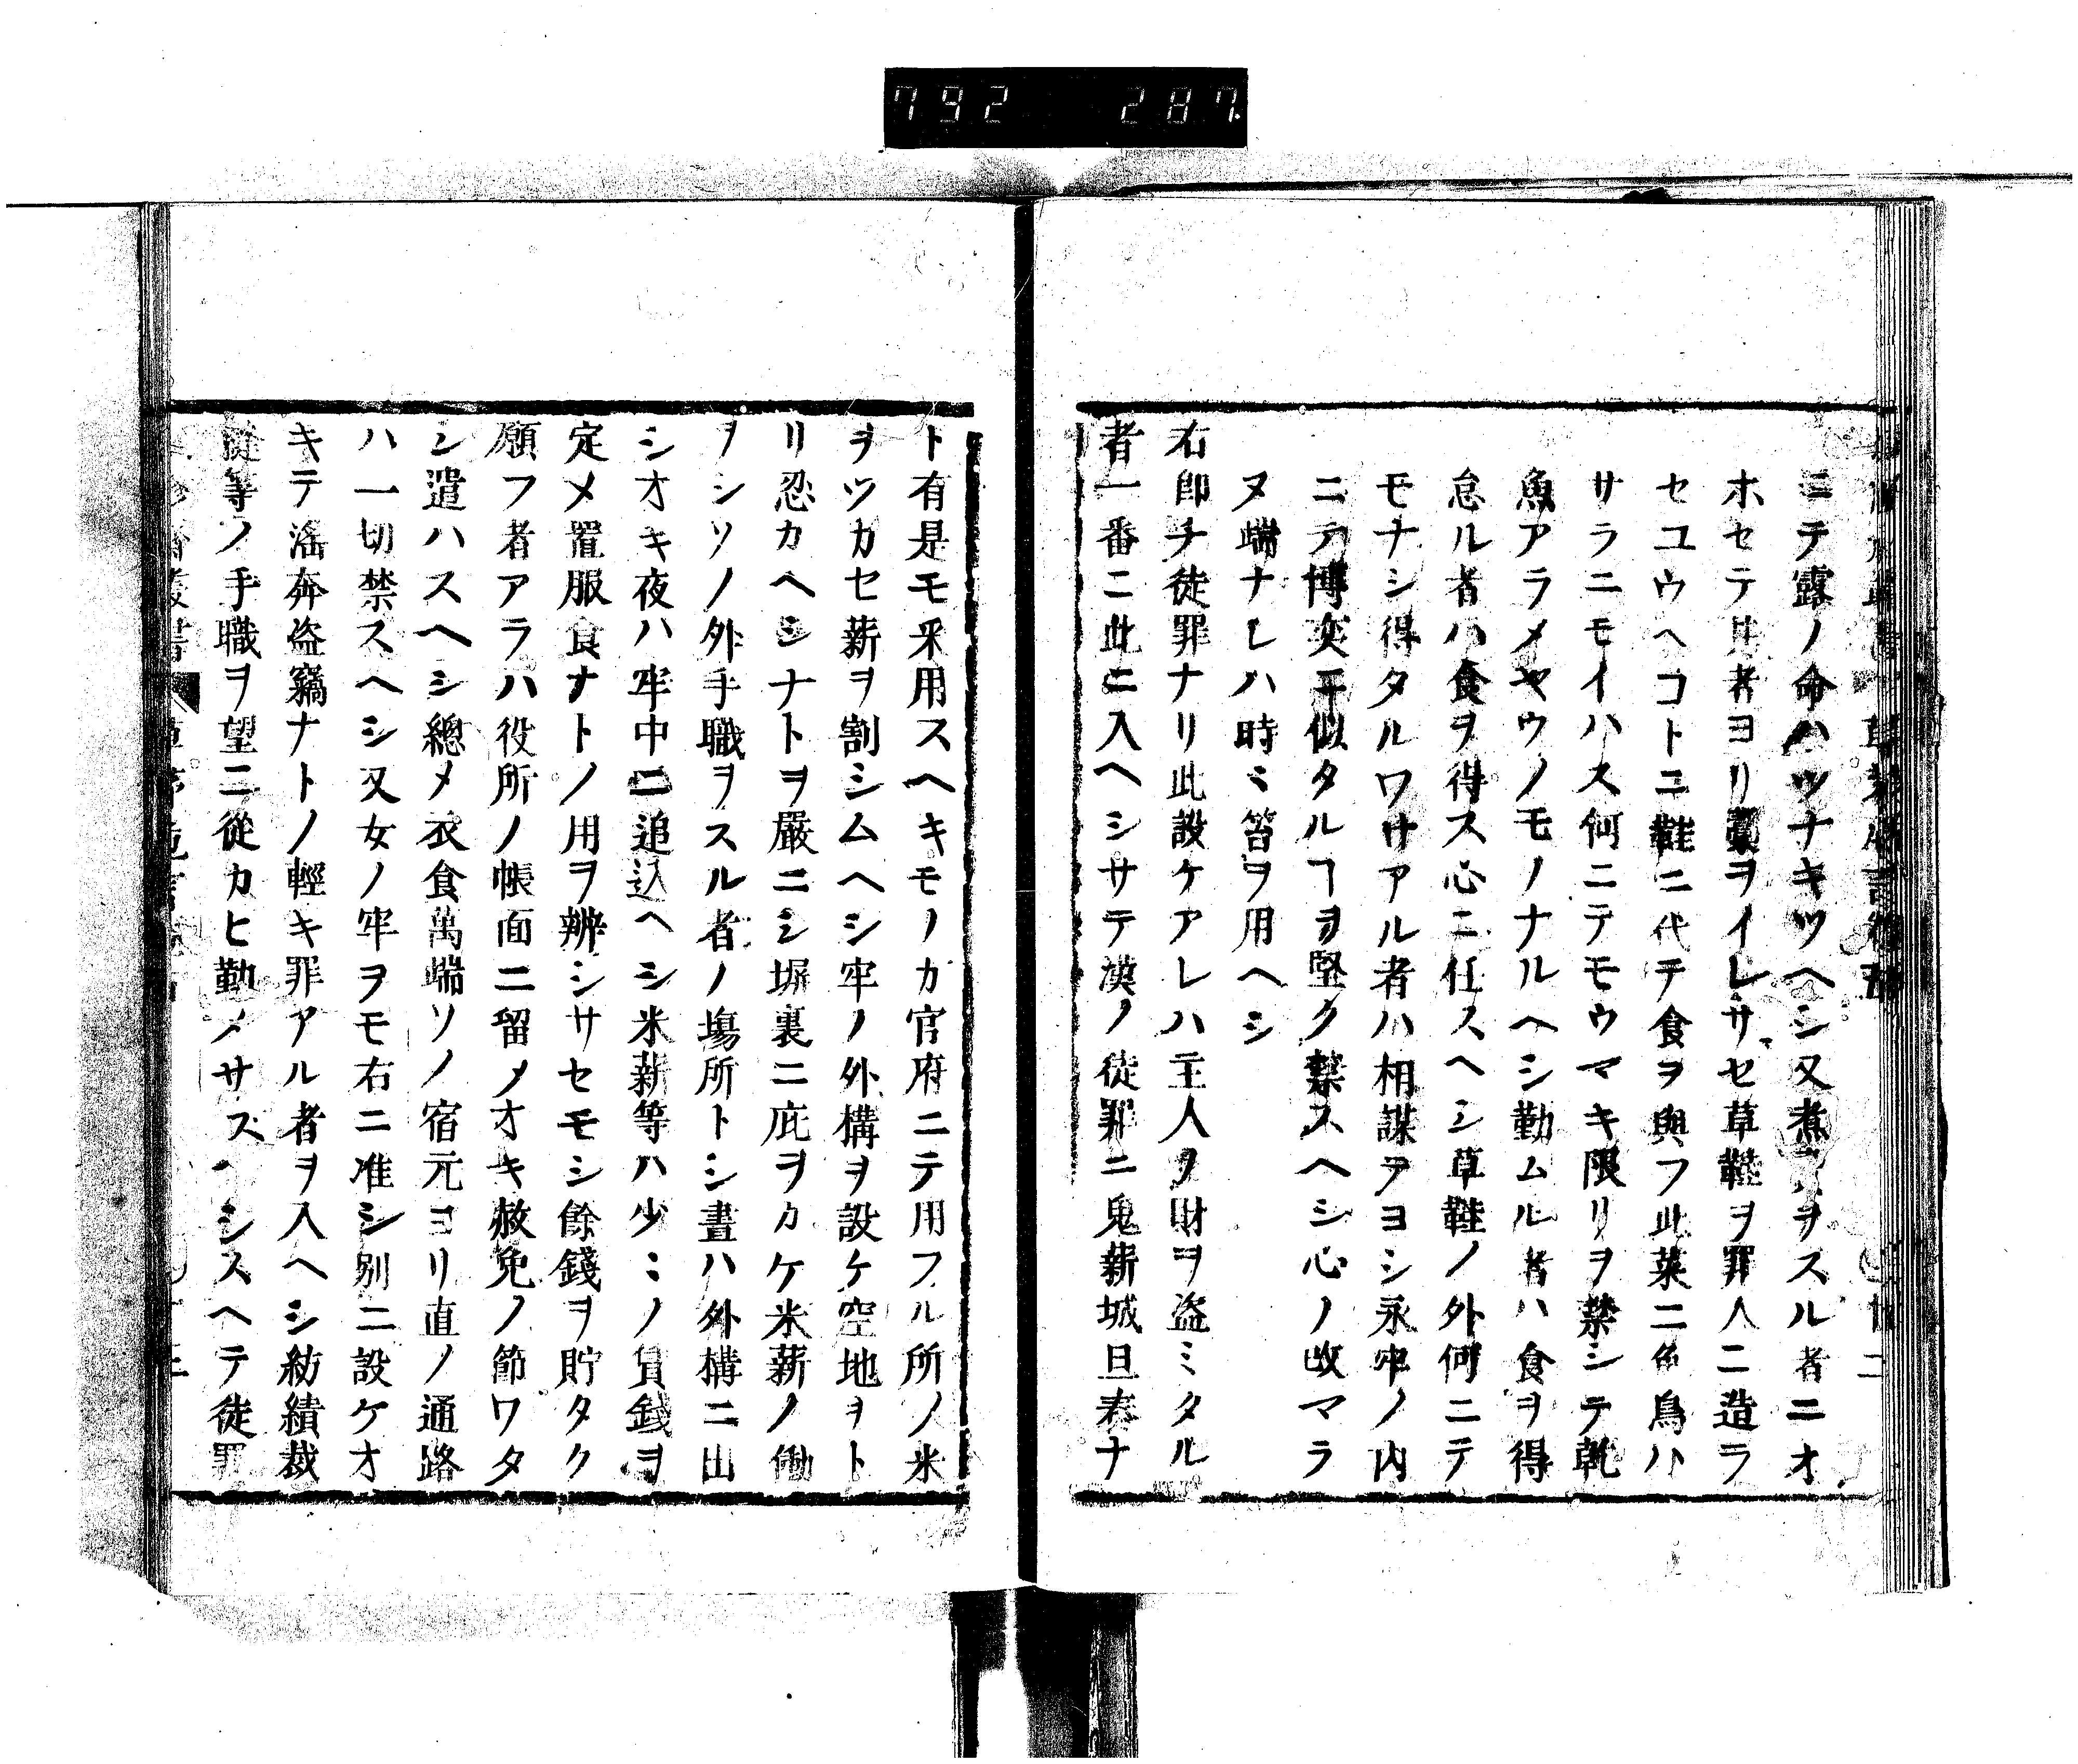 792 287
ニテ露ノ命ハツナキツヘシ又煮ヲスル者ニオ
ホセテ其者ヨリ藁ヲイレサセ草鞋ヲ罪人ニ造ラ
セユウヘコトニ鞋ニ代テ食ヲ與フ此菜ニ魚鳥ハ
サラニモイハス何ニテモウマキ限リヲ禁シテ乾
魚アラメヤウノモノナルヘシ勤ムル者ハ食ヲ得
怠ル者ハ食ヲ得ス心ニ任スヘシ草鞋ノ外何ニテ
モナシ得タルワサアル者ハ相謀テヨシ永牢ノ内
ニテ博奕ニ似タルヿヲ堅ク禁スヘシ心ノ改マラ
ヌ端ナレハ時ミ笞ヲ用ヘシ
右即チ徒罪ナリ此設ケアレハ主人ノ財ヲ盗ミタル
者一番ニ此ニ入ヘシサテ漢ノ徒罪ニ鬼薪城旦舂ナ
ト有是モ采用スヘキモノカ官府ニテ用フル所ノ米
ヲツカセ薪ヲ割シムヘシ牢ノ外構ヲ設ケ空地ヲト
リ忍カヘシナトヲ嚴ニシ塀裏ニ庇ヲカケ米薪ノ働
ヲシソノ外手職ヲスル者ノ塲所トシ晝ハ外構ニ出
シオキ夜ハ牢中ニ追込ヘシ米薪等ハ少ミノ賃錢ヲ
定メ置服食ナトノ用ヲ辨シサセモシ餘錢ヲ貯タク
願フ者アラハ役所ノ帳面ニ留メオキ赦免ノ節ワタ
シ遣ハスヘシ總メ衣食萬端ソノ宿元ヨリ直ノ通路
ハ一切禁スヘシ又女ノ牢ヲモ右ニ准シ別ニ設ケオ
キテ滛奔盗竊ナトノ輕キ罪アル者ヲ入ヘシ紡績裁
縫等ノ手職ヲ望ニ從カヒ勤メサスヘシスヘテ徒罪